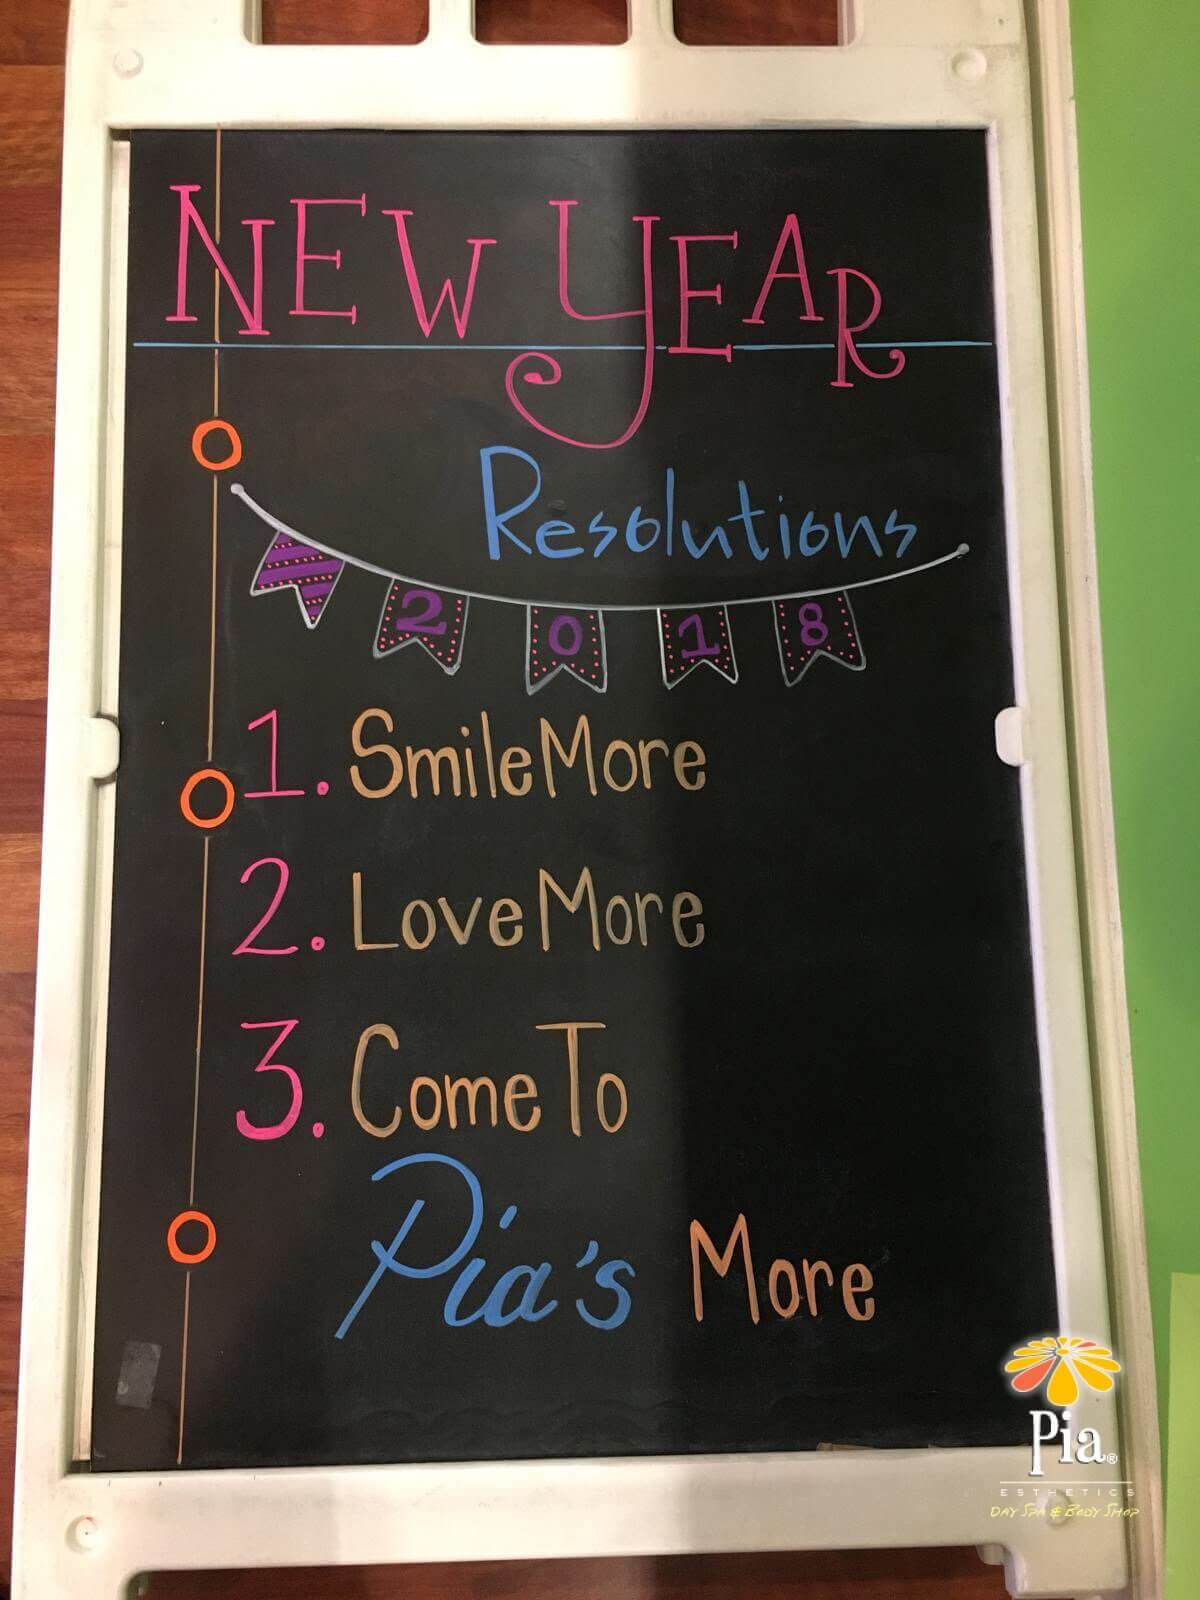 NEW YEAR
Resolutions
2018
1. Smile More
2. Love More
3. Come To
Pia's More
Pia®
ESTHETICS
DAY SPA & BODY SHOP